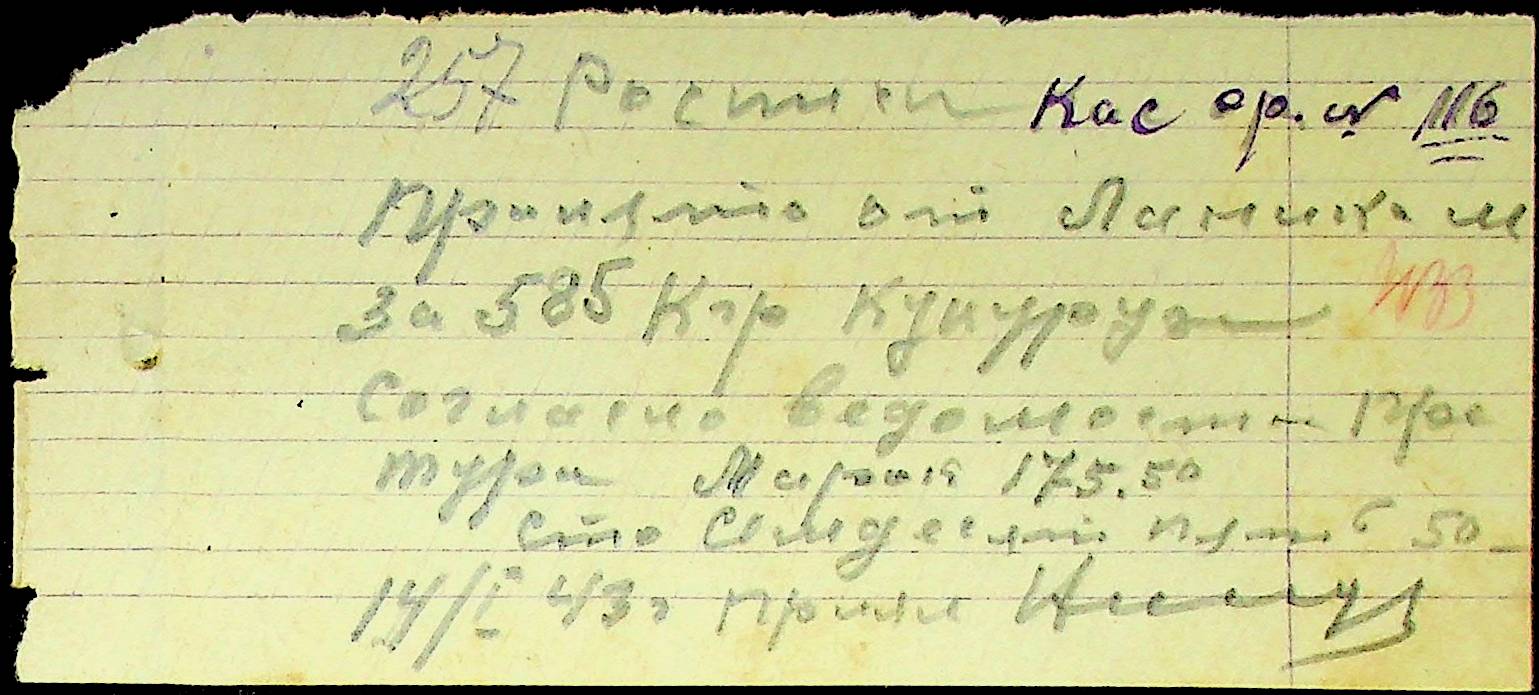 257 Росписка Кас ор. № 116
Принято от Ланика м
За 585 Кгр Кукурузы
Согласно ведомости
Марок 175.50
Сто Семдесят пять 50
14/I 43г принял